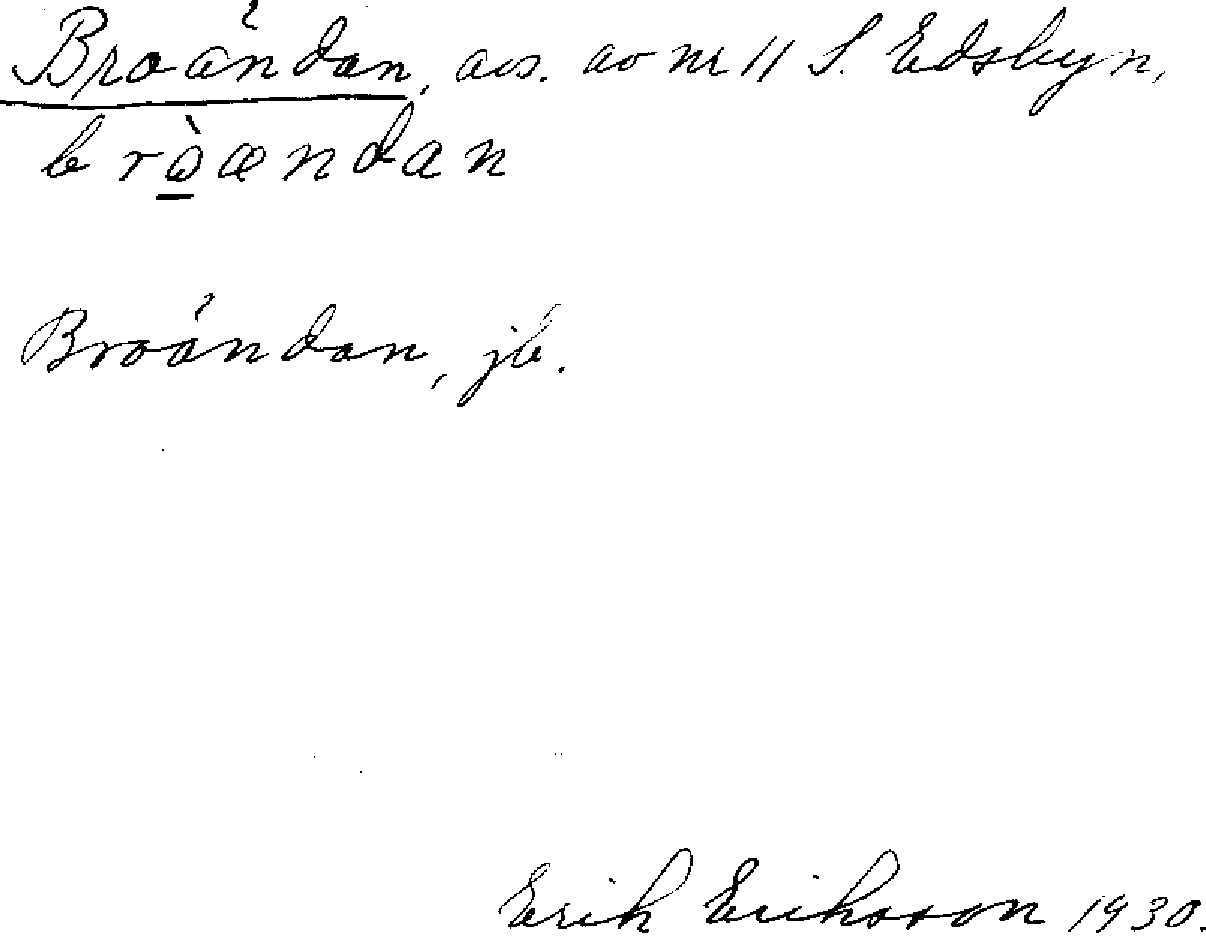 Broändan, avs. av nr 11 S. Edsbyn,
bròændan
Broändan, jb.
Erik Eriksson 1930.